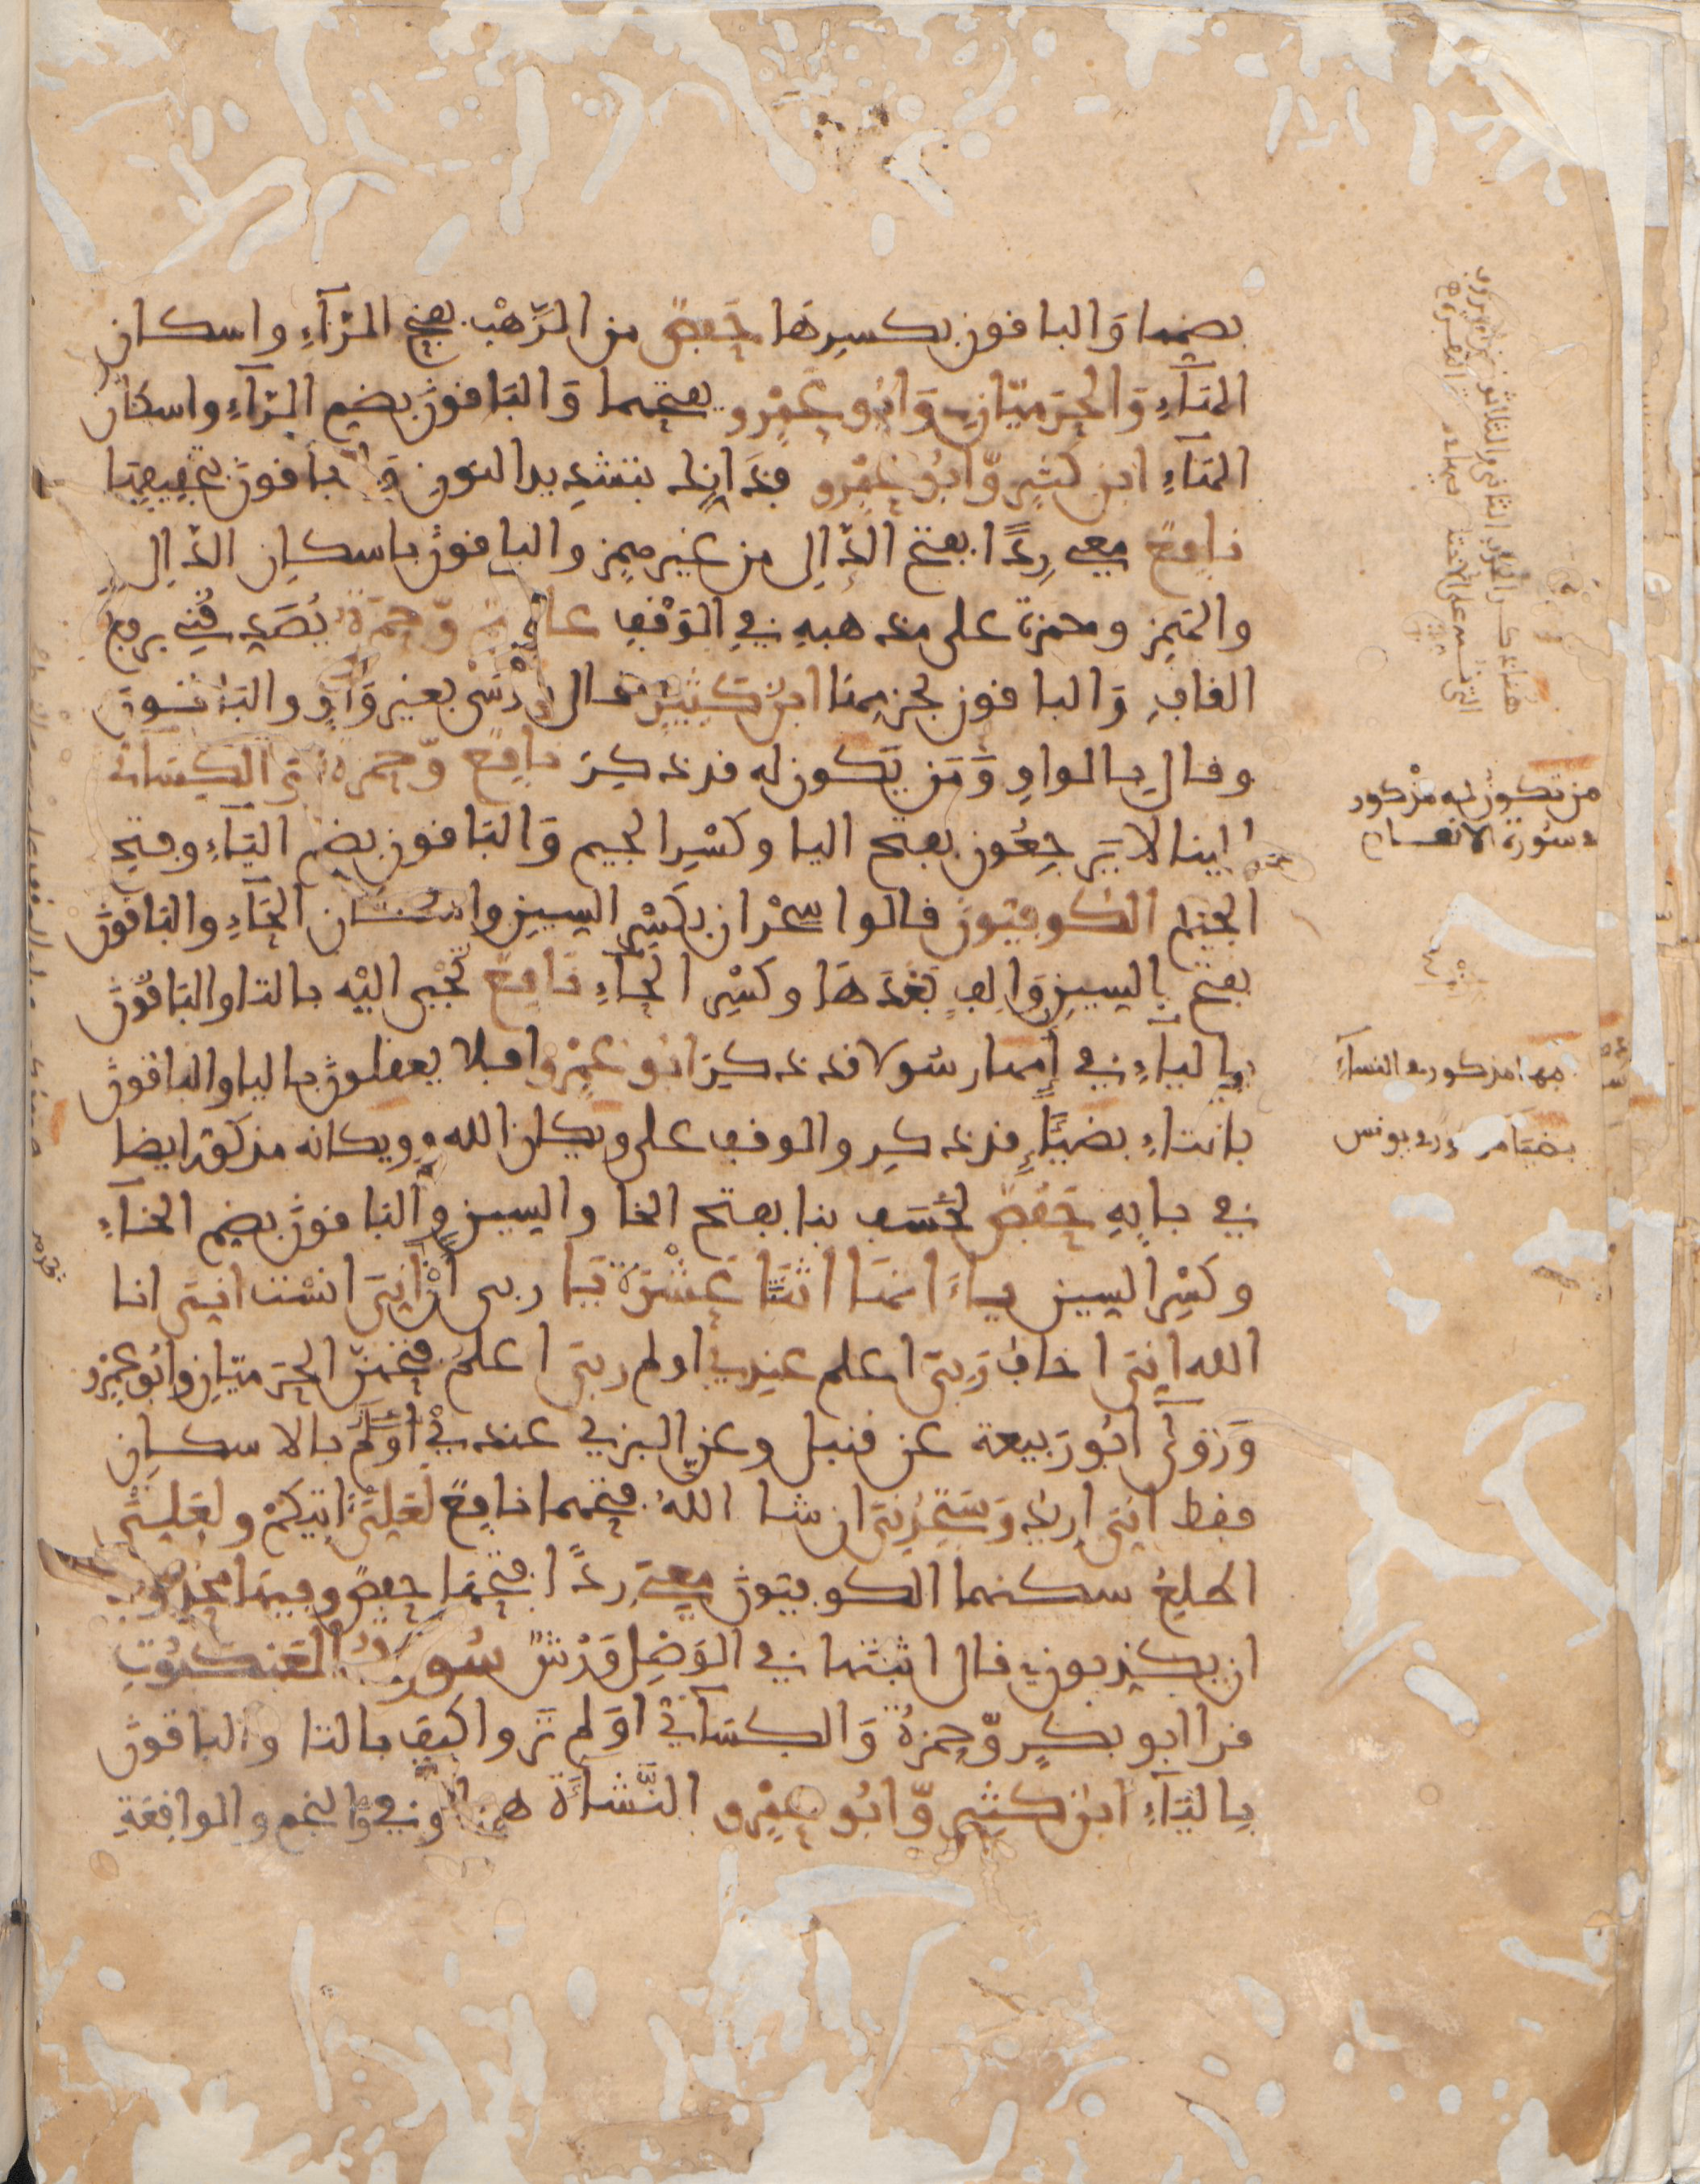 بضمها وَالباقون بكسرِهَا حَفصٌ من الرَّهْبِ بفتح الرّآءِ واسكان
الهَآءِ وَالحِرَمِيَّانِ وَابُو عَمْرٍو بفتحهما وَالبَاقونَ بضم الرّآءِ واسكان
الهَآءِ ابن كثيرٍ وّابُو عَمْرٍو فذَانِكَ بتشدِيد النونِ وَالباقونَ بتخفيفِهَا
نافِعٌ معِى رِدًا بفتح الدَّالِ من غير همزٍ والباقونَ باسكان الدّالِ
والهَمز وحمزة على مذهبهِ فِي الوَقْفِ عاصِمٌ وّحَمزَةُ يُصَدِّقُنِى برفع
القافِ وَالباقون بجزمِهَا ابنُ كَثِيرٍ قال مُوسَى بغير وَاوٍ وَالبَاقونَ
وقال بالواوِ وَمَن يَّكون له قد ذكِرَ نافِعٌ وّحمزةُ وَالكِسَآئى
الينا لا يَرجِعُون بفتح اليا وكَسْرِ الجيم وَالبَاقون بضم اليَآءِ وفتح
الجيم الكوفيّونَ قالوا سِحْرَانِ بكَسْرِ السِين واسكان الحَآءِ والبَاقونَ
بفتح السِينِ وَالِفٍ بَعْدَهَا وكَسْرِ الحَآءِ نافعٌ تُجْبى اليْه بالتا والبَاقونَ
بِاليآءِ في إمها رسُولا قد ذكِرَ ابُو عَمْرٍو افلا يعقلونَ باليا والباقونَ
بالتاءِ بضيَآءٍ قد ذكِر والوقف على ويكان الله وويكانه مذكور ايضا
في بابِهِ حَفْصٌ لخَسَفَ بنا بفتح الخا والسِين وَالباقونَ بضم الخآءِ
وكَسْرِ السِين يَاءَاتهَا اثنَتَا عَشْرَةَ يَا ربى أنْ انِّىَ انسْت انِّىَ انا
الله انِّىَ اخاف رَبِّىَ اعلم عندِىَ اولم ربِّىَ اعلم فتحهنّ الحِرَمِيَّانِ وابُو عَمْرٍو
وَرَوَى ابُو رَبيعة عن قنبل وعن البزي عندِيْ أوَلَمْ بالاسكان
فقط انِّىَ اريدُ وَسَتَجِدُنِىَ ان شا اللهُ فتحهما نافِعٌ لَعَلِّىَ اتيكمْ ولعَلِّىَ
اطلِعُ سكنهما الكوفِيّونَ مَعِىَ رِدًا فتحهَا حفصٌ وفيها محذوفة
ان يكذبون قال اثبتها في الوَصْلِ وَرْشٌ سُورَةُ العَنكَبُوتِ
قرا ابو بكرٍ وّحمزةُ وَالكِسَآئى اوَلم تَروا كيف بالتا والباقونَ
بِاليَآءِ ابنُ كثيرٍ وّابُو عَمْرٍو النَّشَآءَةَ هنا وفي وَالنجم والواقِعَةِ
من تكون له مذكور
في سُورة الانعام
امها مذكور في النسآءِ
بضيَآء في يونس